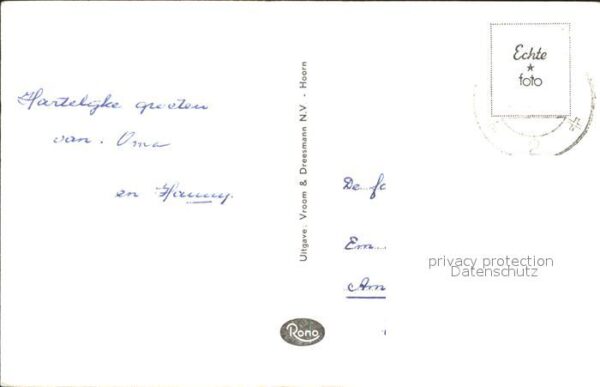 Hartelijke groeten
van. Oma
en Hanny.
Uitgave: Vroom & Dreesmann N.V. - Hoorn
Echte
foto
De
Em
Am
privacy protection
Datenschutz
Rono